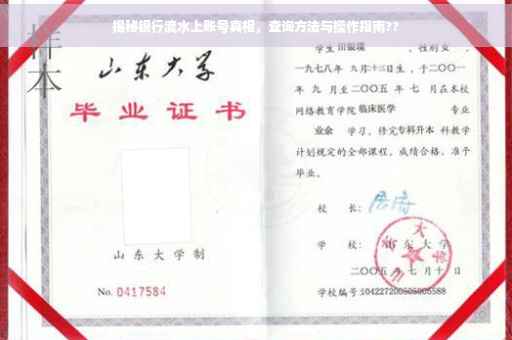 揭秘银行流水上账号真相，查询方法与操作指南??
样本
山东大学
毕业证书
山东大学制
No. 0417584
学生 田银瑞 ，性别 女 ，
一九七八年 九月十三日生，于二〇〇一
年 九 月至二〇〇五 年 七 月在本校
网络教育学院 临床医学 专业
业余 学习，修完专科升本 科教学
计划规定的全部课程，成绩合格，准予
毕业。
校 长：
学 校： 山东大学
二〇〇五年 七 月 十 日
学校编号：104227200505005588